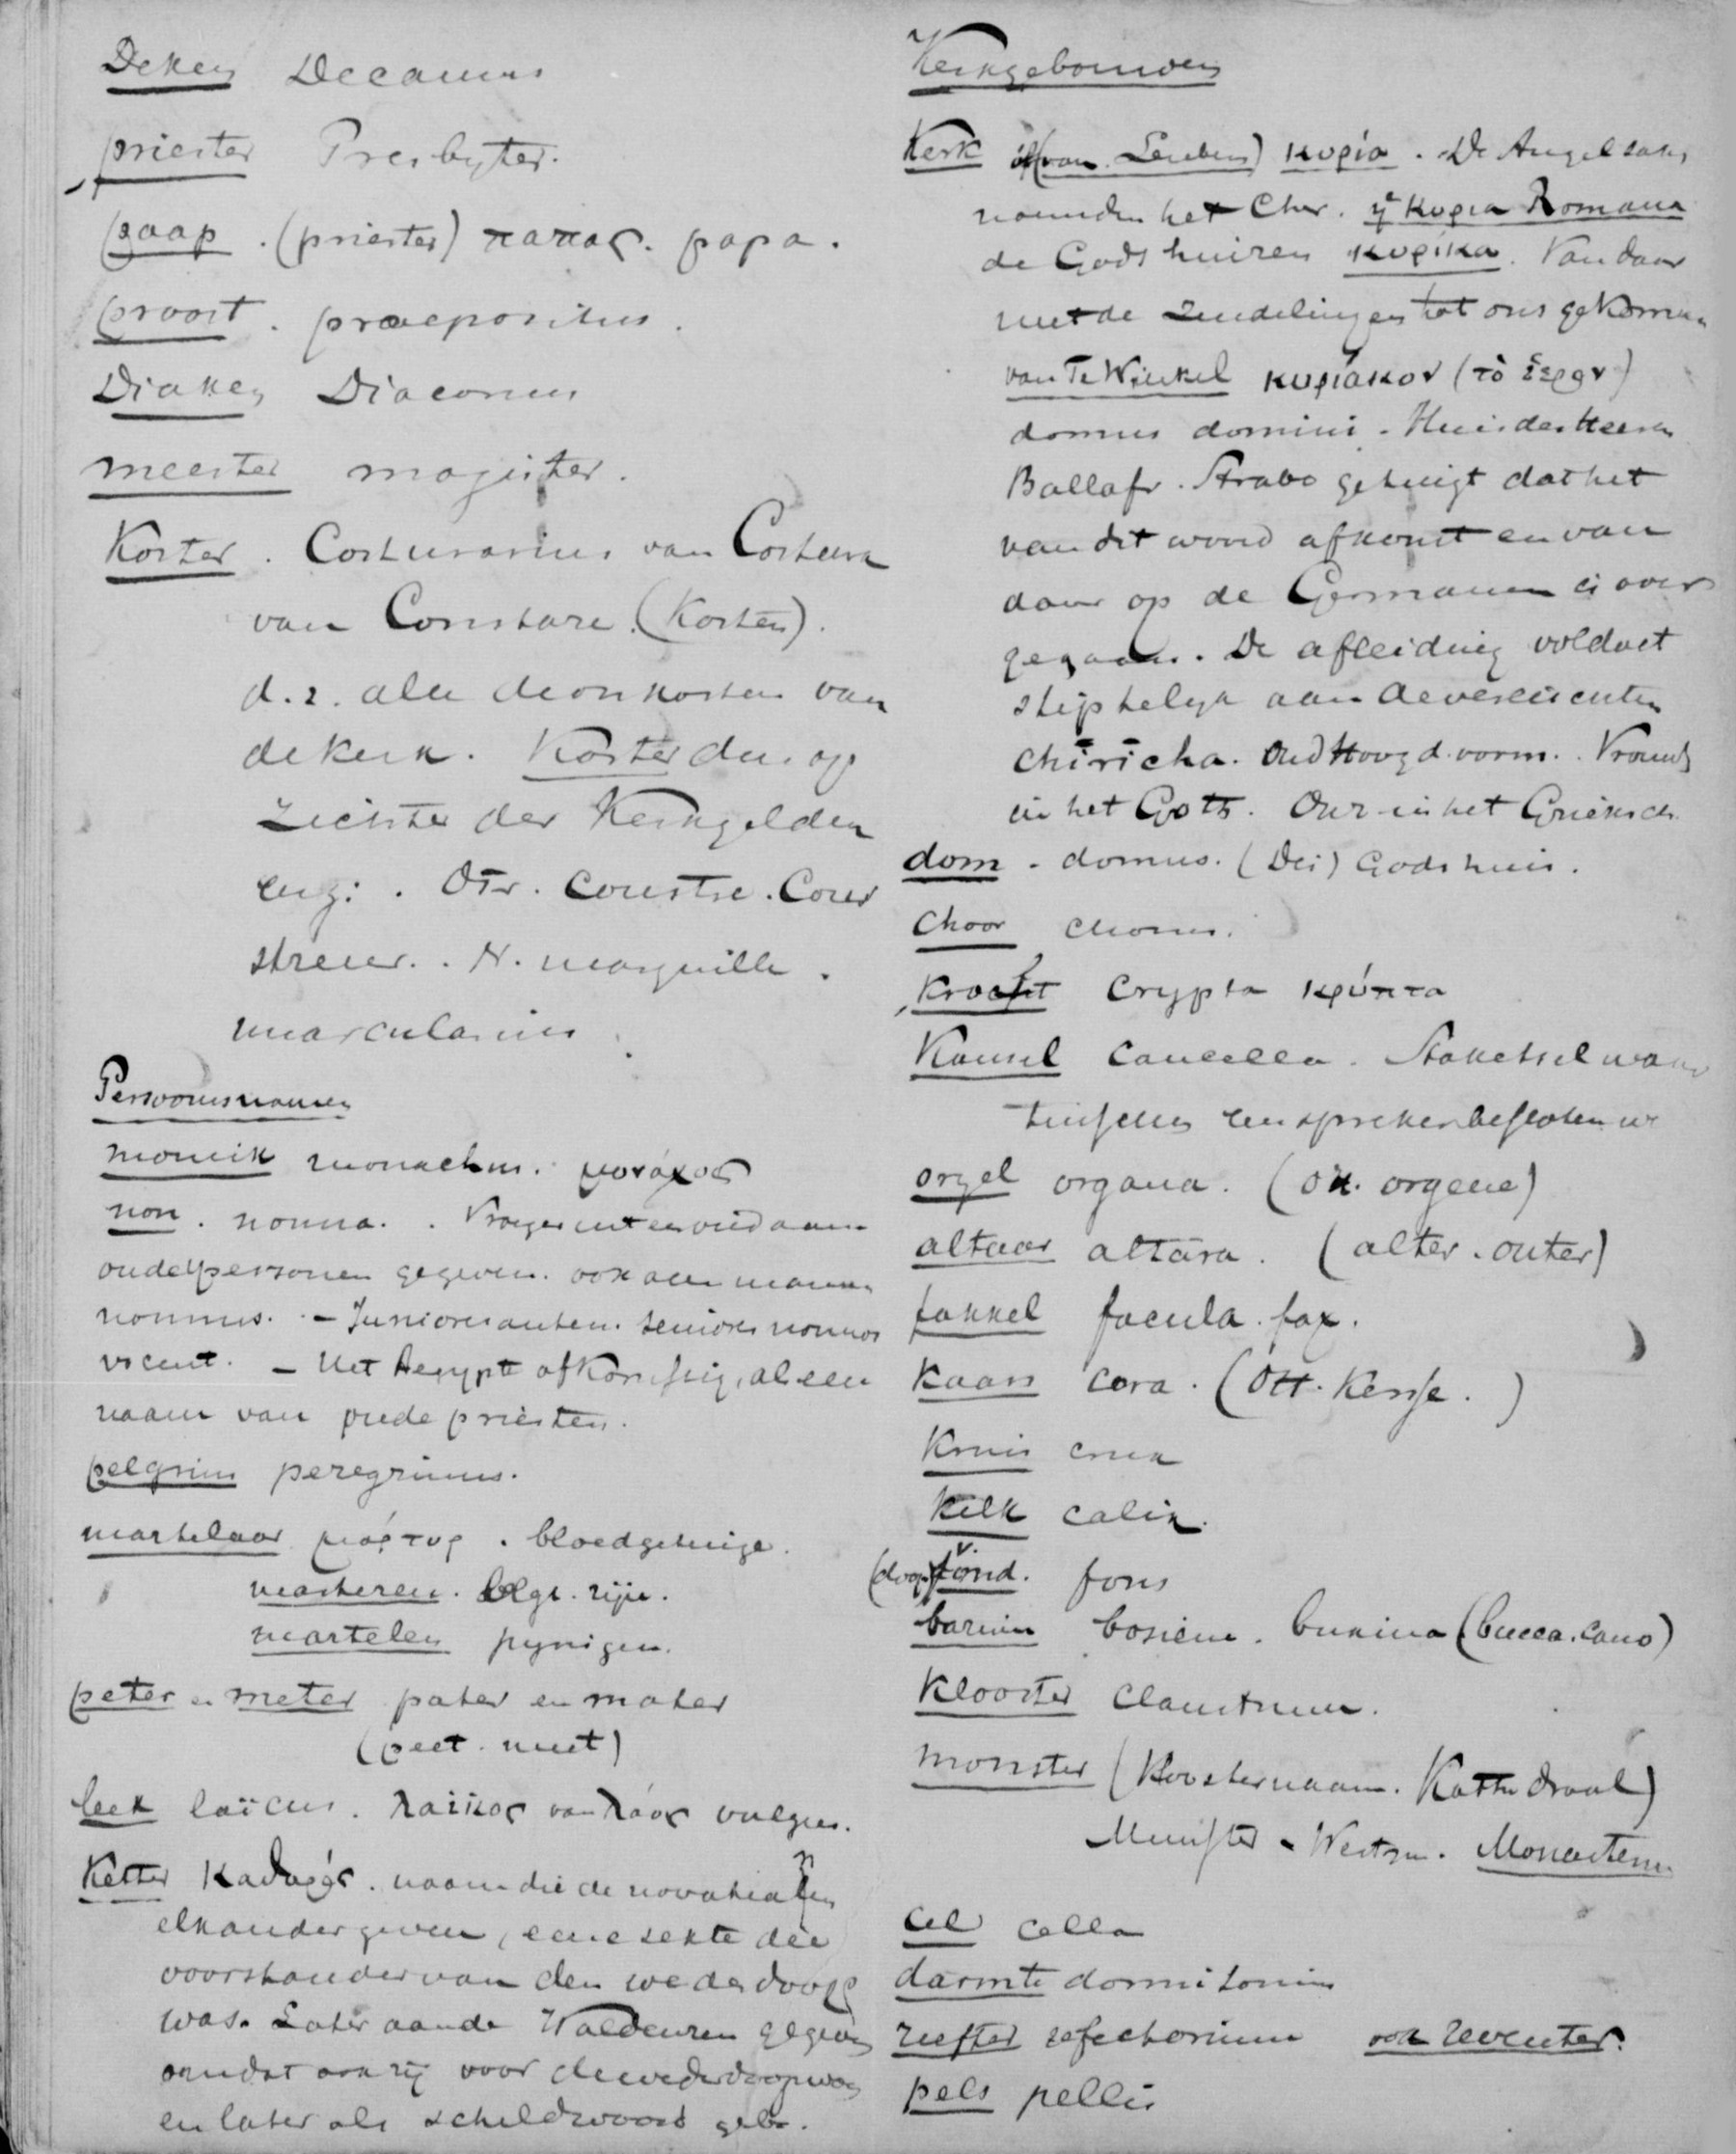 Deken Decanus
priester Presbyter.
paap. (priester) παπας. papa.
proost. praepositus.
Diaken Diaconus
meester magister.
Koster. Costurarius van Costura
van Constare. (Kosten).
d.i. alle de onkosten van
de kerk. Koster dus op
zichter der Kerkgelden
enz. . Ofr. Coustre. Cous
streur. . N. marguille.
marcularius.
Persoonsnamen
monnik monachus. μονάχος
non. nonna. . Vroeger uit eerbied aan
oude personen gegeven. ook aan mannen
nonnus. - Juniores autem seniores nonnos
vocent. - Uit Aegypte afkomstig, als een
naam van oude priesters.
pelgrim peregrinus.
martelaar μάρτυρ. bloedgetuige.
marteren. belgt. zijn.
martelen pynigen.
peter en meter pater en mater
(peet. meet)
leek laïcus. λαϊκος van λάος vulgus.
Ketter Καθαρός. naam die de novatianen
elkander geven, eene sekte die
voorstander van den wederdoop
was. Later aan de Waldenzen gegeven
omdat ook zij voor de wederdoop was
en later als scheldwoord gebr.
Kerkgebouwen
Kerk (van Leuben) κυρία. De Angelsaks
noemden het Chr. ἡ κυρια Romana
de Godshuizen κυρικα. Van daar
met de zendelingen tot ons gekomen
van Te Winkel κυριακον (τὸ
domus domini - Huis des Heeren
Ballafr. Strabo getuigt dat het
van dit woord afkomt en van
daar op de Germanen is over
gegaan. De afleiding voldoet
stiptelyk aan de vereischten
chirīcha. Oud Hoogd. vorm. . Vrouwl
in het Goth. Onz. in het Grieksch.
dom - domus. (Dei) Godshuis.
Choor chorus.
Krocht Crypta κρύπτα
Kansel Cancella. Staketsel waar
tusschen een spreker besloten w
orgel organa. (ok. orgene)
altaar altāra. (alter. outer)
fakkel facula. fax.
Kaars cera. (Ott. Kerse.)
Kruis crux
Kelk calix.
(doop) vond. fons
bazuin bosiene. bucina (bucca. cano)
Klooster Claustrum.
monster (Kloosternaam. Kathedraal)
Munster - Westm. Monasterium
cel cella
darmte dormitorium
reefter refectorium ook reventer.
pels pellis